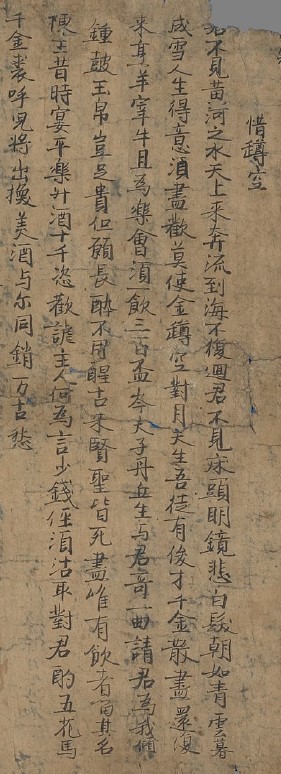 惜罇空
君不見黄河之水天上來奔流到海不復迴君不見床頭明鏡悲白髮朝如青雲暮
成雪人生得意須盡歡莫使金罇空對月天生吾徒有俊才千金散盡還復
来烹羊宰牛且為樂會須一飲三百盃岑夫子丹丘生与君哥一曲請君為我傾
鍾皷玉帛豈足貴但願長醉不用醒古来賢聖皆死盡唯有飲者留其名
陳王昔時宴平樂斗酒十千恣歡謔主人何為言少錢徑須沽取對君酌五花馬
千金裘呼兒將出換美酒与尔同銷万古愁